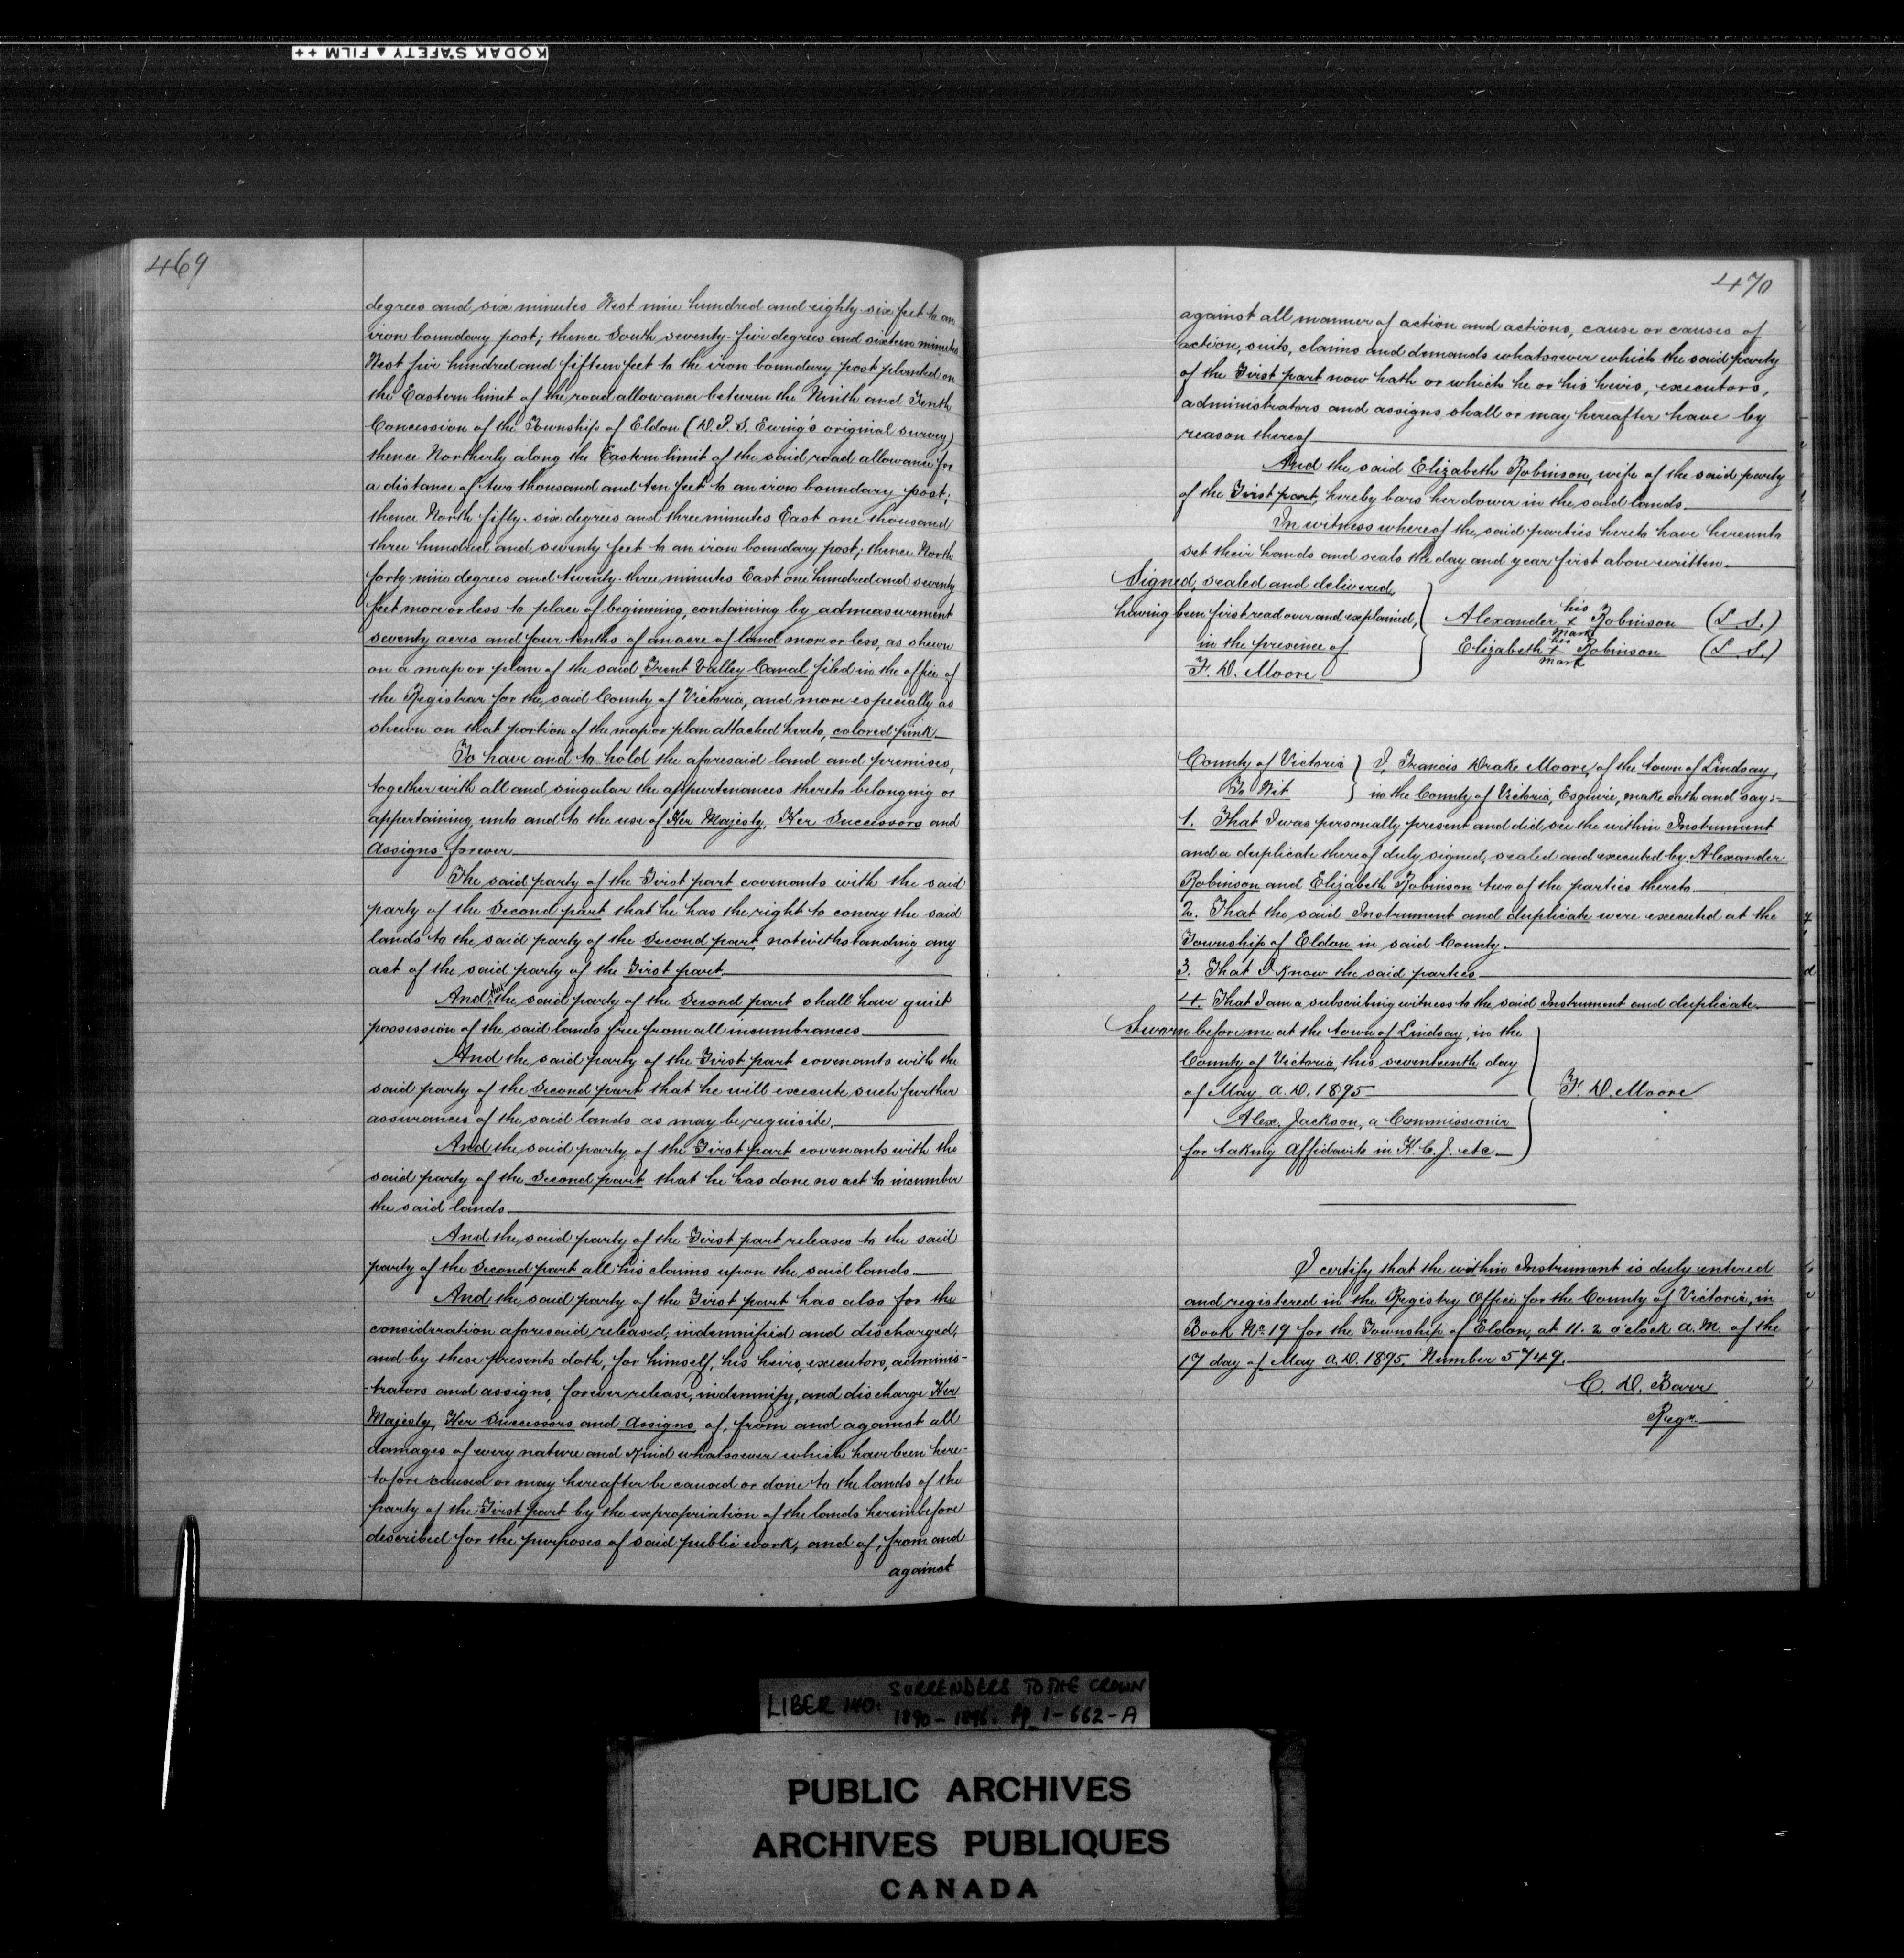 KODAK SAFETY ▲ FILM ++
469
degrees and six minutes West nine hundred and eighty-six feet to an
iron boundary post; thence South seventy-five degrees and sixteen minutes
West five hundred and fifteen feet to the iron boundary post planted on
the Eastern limit of the road allowance between the Ninth and Tenth
Concession of the Township of Eldon (D.P.S. Ewing's original survey)
thence Northerly along the Eastern limit of the said road allowance for
a distance of two thousand and ten feet to an iron boundary post;
thence North fifty-six degrees and three minutes East one thousand
three hundred and seventy feet to an iron boundary post; thence North
forty-nine degrees and twenty-three minutes East one hundred and seventy
feet more or less to place of beginning, containing by admeasurement
seventy acres and four tenths of an acre of land more or less, as shewn
on a map or plan of the said Trent Valley Canal filed in the office of
the Registrar for the said County of Victoria, and more especially as
shewn on that portion of the map or plan attached hereto, colored pink.
To have and to hold the aforesaid land and premises,
together with all and singular the appurtenances thereto belonging or
appertaining, unto and to the use of Her Majesty, Her Successors and
Assigns forever.
The said party of the First part covenants with the said
party of the Second part that he has the right to convey the said
lands to the said party of the Second part notwithstanding any
act of the said party of the First part.
And that the said party of the Second part shall have quiet
possession of the said lands free from all incumbrances.
And the said party of the First part covenants with the
said party of the Second part that he will execute such further
assurances of the said lands as may be requisite.
And the said party of the First part covenants with the
said party of the Second part that he has done no act to incumber
the said lands.
And the said party of the First part releases to the said
party of the Second part all his claims upon the said lands.
And the said party of the First part has also for the
consideration aforesaid, released, indemnified and discharged,
and by these presents doth, for himself, his heirs, executors, adminis-
-trators and assigns, forever release, indemnify, and discharge Her
Majesty, Her Successors and Assigns of, from and against all
damages of every nature and kind whatsoever which have been here-
-tofore caused or may hereafter be caused or done to the lands of the
party of the First part by the expropriation of the lands hereinbefore
described for the purposes of said public work, and of, from and
against
470
against all manner of action and actions, cause or causes of
action, suits, claims and demands whatsoever which the said party
of the First part now hath or which he or his heirs, executors,
administrators and assigns shall or may hereafter have by
reason thereof
And the said Elizabeth Robinson, wife of the said party
of the First part, hereby bars her dower in the said lands.
In witness whereof the said parties hereto have hereunto
set their hands and seals the day and year first above written.
Signed, sealed and delivered,
having been first read over and explained,
in the presence of
F. D. Moore
Alexander his + mark Robinson (L.S.)
Elizabeth her + mark Robinson (L.S.)
County of Victoria
To Wit
I, Francis Drake Moore, of the town of Lindsay,
in the County of Victoria, Esquire, make oath and say:-
1. That I was personally present and did see the within Instrument
and a duplicate thereof duly signed, sealed and executed by Alexander
Robinson and Elizabeth Robinson two of the parties thereto.
2. That the said Instrument and duplicate were executed at the
Township of Eldon in said County.
3. That I know the said parties
4. That I am a subscribing witness to the said Instrument and duplicate.
Sworn before me at the town of Lindsay, in the
County of Victoria, this seventeenth day
of May A.D. 1895
Alex. Jackson, a Commissioner
for taking Affidavits in H.C.J. etc
F. D. Moore
I certify that the within Instrument is duly entered
and registered in the Registry Office for the County of Victoria, in
Book No 19 for the Township of Eldon, at 11.2 o'clock A.M. of the
17 day of May A.D. 1895. Number 5749.
C. D. Barr
Regr.
LIBER 140: SURRENDERS TO THE CROWN
1890-1896. pp 1-662-A
PUBLIC ARCHIVES
ARCHIVES PUBLIQUES
CANADA